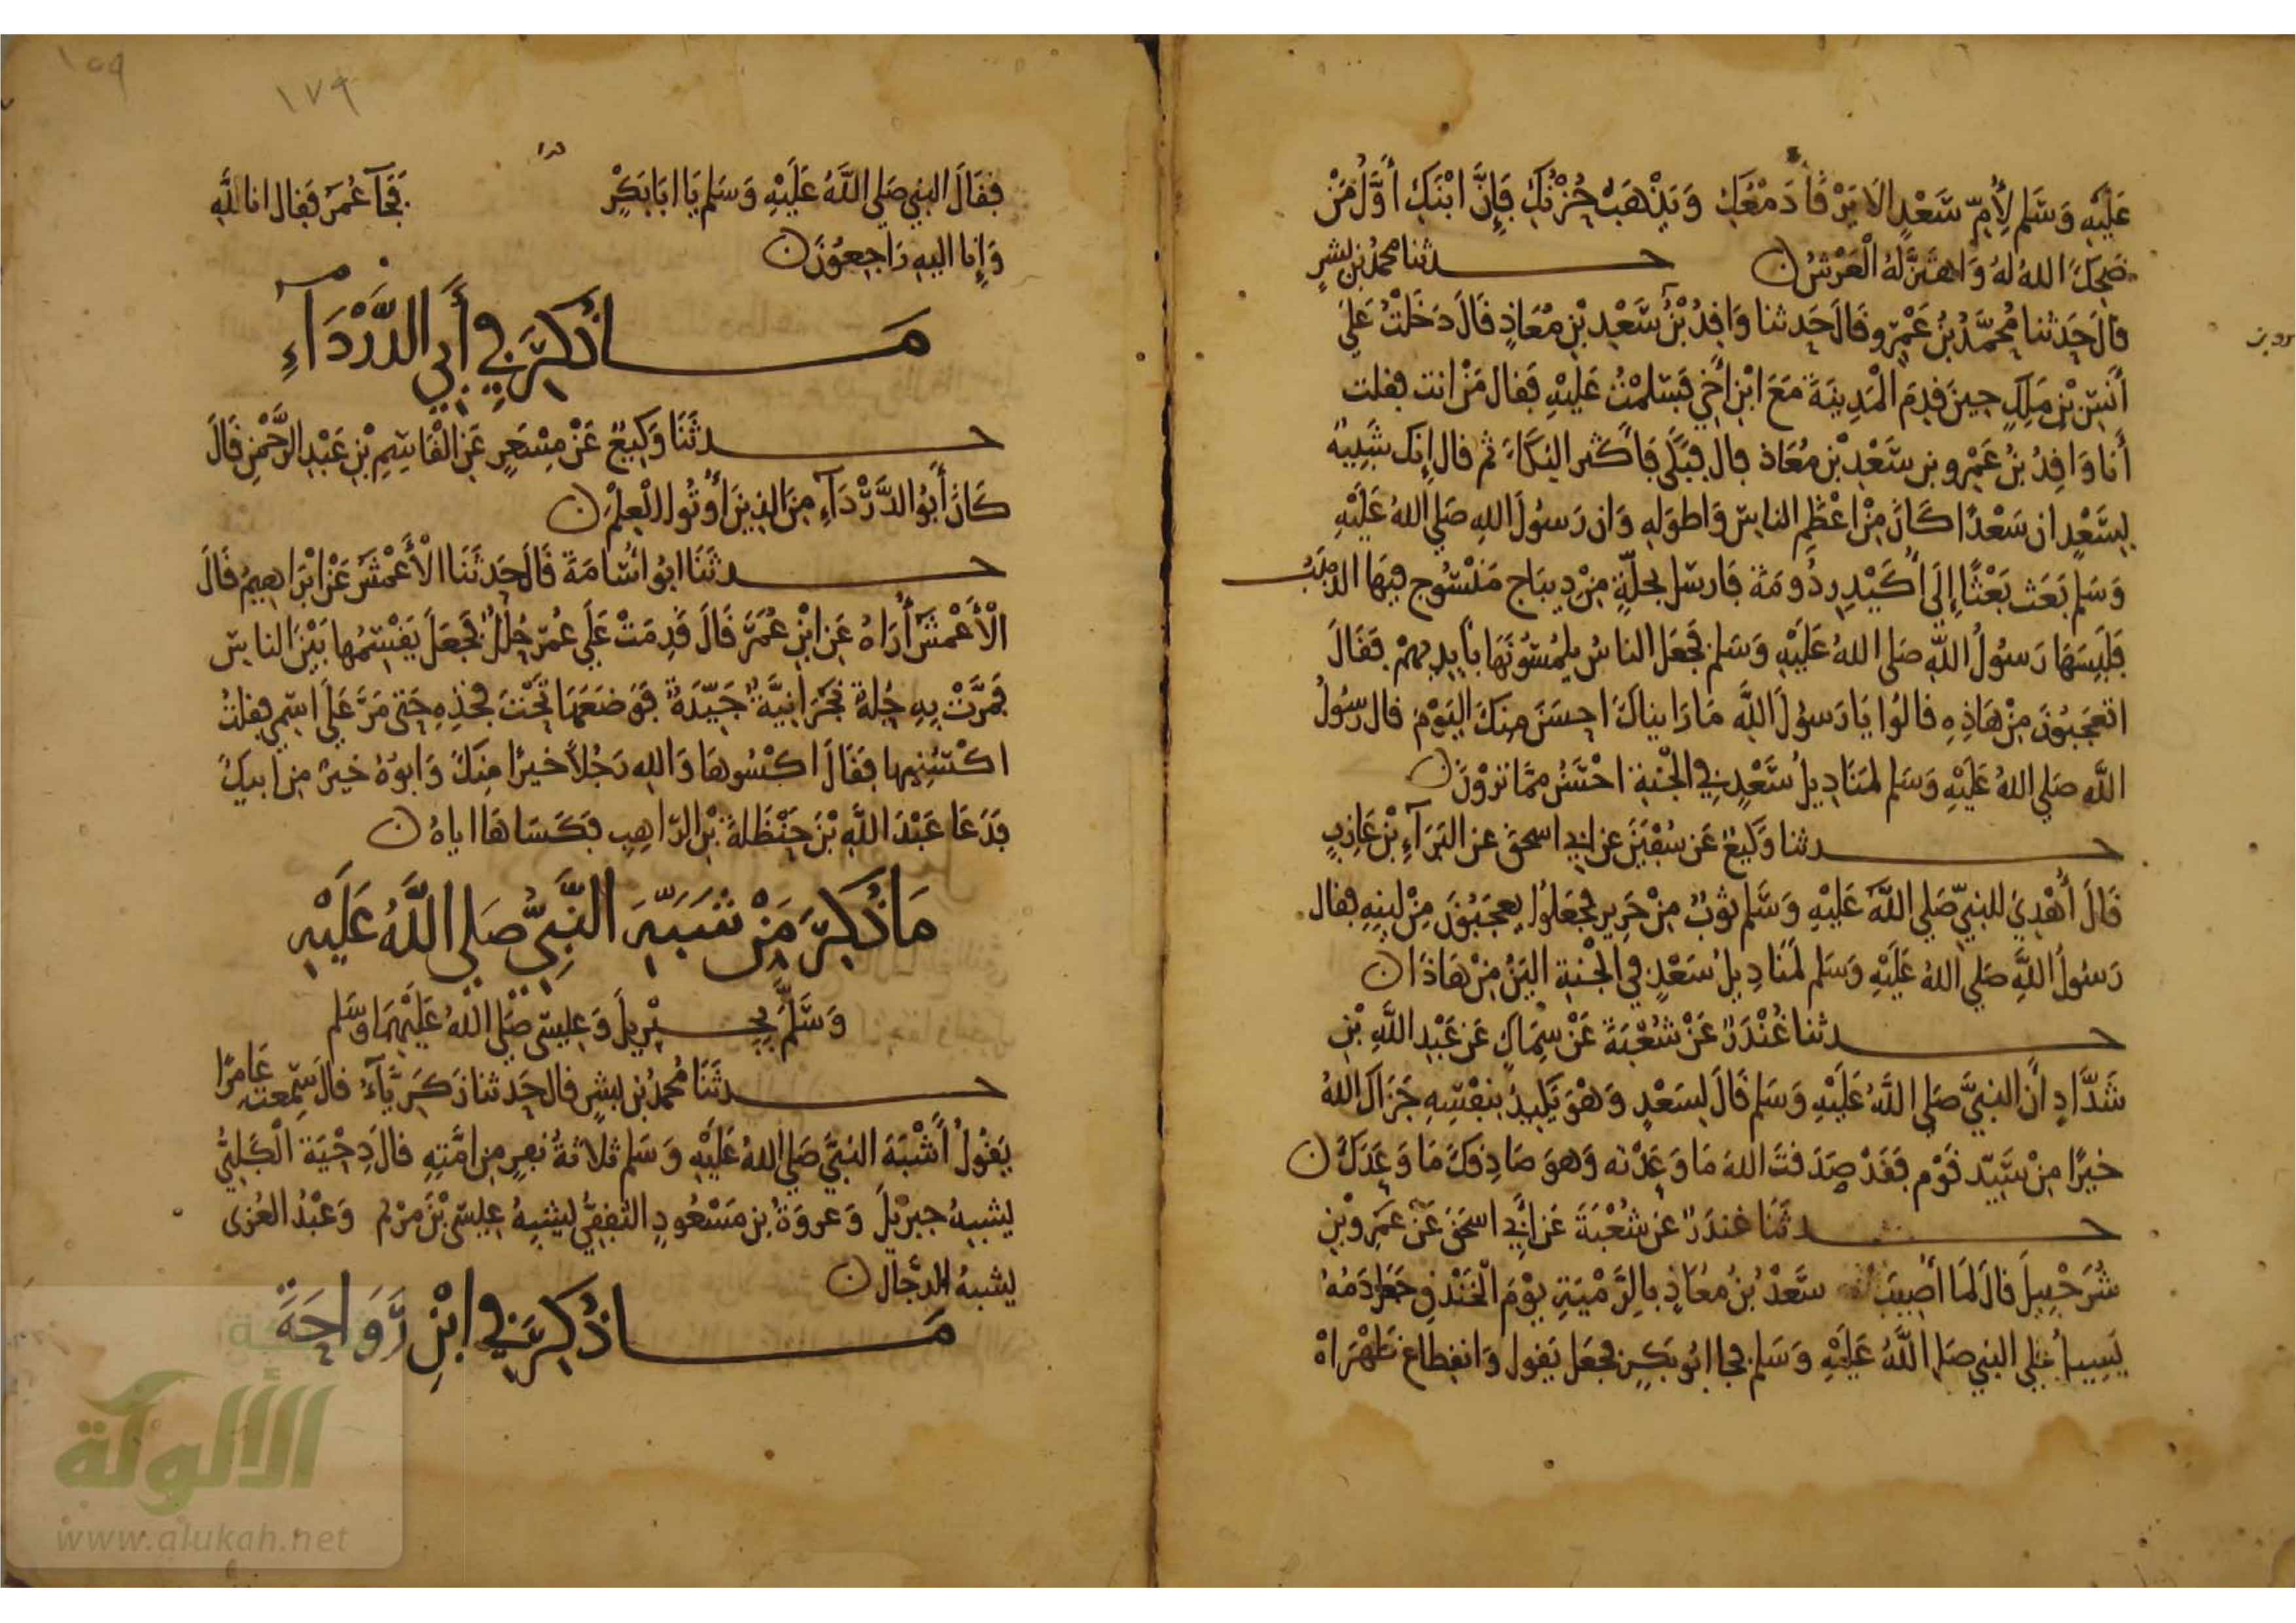 عَلَيْهِ وَسَلم لِأُمِّ سَعْدٍ الَا يَرْقَأُ دَمْعُكِ وَيَذْهَبُ حُزْنُكِ فَإِنَّ ابْنَكِ أَوَّلُ مَنْ
ضَحِكَ اللهُ لهُ وَاهتَزَّ لهُ الْعَرْشُ
حدثنا محمدُ بن بشرٍ
قالَ حَدثنا مُحمَّدُ بْنُ عَمْرٍو قَالَ حَدثنا وَاقِدُ بْنُ سَعْدِ بْنِ مُعَاذٍ قَالَ دَخَلْتُ عَلَى
أَنَسِ بْنِ مَلِكٍ حِينَ قدِمَ الْمَدِينَةَ مَعَ ابْنِ أَخِي فَسَلمْتُ عَلَيْهِ فَقال مَنْ انت فقلت
أَنا وَاقِدُ بْنُ عَمْرِو بن سَعْدِ بْنِ مُعَاذ قال فبَكَى فَأَكْثَر البُكَاءَ ثم قال إِنك شَبِيهٌ
بِسَعْدٍ ان سَعْدًا كَانَ مِنْ اعْظَمِ الناسِ وَاطوَلِهِ وَان رَسُولَ اللهِ صَلى اللهُ عَلَيْهِ
وَسَلم بَعَث بَعْثًا إِلَى أُكَيْدِرِ دُومَةَ فَارسَل بحلّةٍ مِنْ دِيبَاج مَنْسُوج فِيهَا الذهَبُ
فَلَبِسَهَا رَسُولُ اللَّهِ صَلى اللهُ عَلَيْهِ وَسَلم فجَعَل الناسُ يلمُسُونَهَا بأَيدِيهِمْ فَقَالَ
اتعجَبُونَ مِنْ هَاذِهِ قالوُا يَا رَسُولَ اللَّهِ مَا رَايناكَ احسَنَ مِنكَ اليَوْمَ قال رسُولُ
اللَّهِ صَلى اللهُ عَلَيْهِ وَسَلم لمَنَادِيلُ سَعْدٍ فِي الجْنةِ احْسَنُ ممَّا تَرَوْنَ
حدثنا وَكِيعٌ عَن سُفْيَنَ عن ابي اسحقَ عن البَرَآءِ بْنِ عَازِبٍ
قَالَ أُهْدِيَ للنبيِّ صَلى اللَّهُ عَلَيْهِ وَسَلم ثوْبٌ مِنْ حَرِيرٍ فجَعَلوُا يعجَبُونَ مِنْ لينِهِ فقال
رَسُولُ اللَّهِ صَلى اللهُ عَلَيْهِ وَسَلم لَمَنَادِيلُ سَعْدٍ فِي الجْنةِ اليَنُ مِنْ هَاذَا
حدثنا غُنْدَرٌ عَنْ شُعْبَةَ عَنْ سِمَاكٍ عَن عَبْدِ اللَّهِ بْنِ
شَدَّادٍ أَن النبيَّ صَلى اللَّهُ عَلَيْهِ وَسَلم قَالَ لِسَعْدٍ وَهْوَ يَكِيدُ بنفْسِهِ جَزَاكَ اللهُ
خيرًا مِنْ سَيّد قَوْم فَقَدْ صَدَقتَ اللهَ مَا وَعَدْته وَهوَ صَادِقكَ مَا وَعَدَكَ
حدثَنَا غندَرٌ عَن شُعْبَةَ عَن أَبي اسحَقَ عَنْ عَمرِو بْنِ
شُرَحْبِيلَ قالَ لمَا أُصِيبَ سَعْدُ بْنُ مُعَاذٍ بالرَّمْيَةِ يوْمَ الْخَنْدَقِ جَعَلَ دَمُهُ
يَسِيلُ عَلى النبي صَلى اللَّهُ عَلَيْهِ وَسَلم فجا ابُو بَكرٍ فجعَل يَقول وَانقِطاع ظَهْرَاهْ
فقَالَ النبي صَلى اللَّهُ عَلَيْهِ وَسَلم يَا ابَا بَكْرٍ فَجَآءَ عُمَرُ فَقال انا للَّهِ
وَإِنا اليهِ رَاجِعوُنَ
مَا ذُكِرَ فِي أَبِي الدَّرْدَآءِ
حدثَنَا وَكِيعٌ عَنْ مِسْعَرٍ عَنِ الْقَاسِمِ بْنِ عَبْدِ الرَّحْمْنِ قَالَ
كَانَ أَبُو الدَّرْدَآءِ مِنَ الذِينَ أُوتُوا الْعِلْمَ
حدثَنَا ابُو اسَامَةَ قَالَ حَدثَنَا الْأَعْمَشُ عَنْ ابْرَاهِيمَ قَالَ
الْأَعْمَشُ أُرَاهُ عَنِ ابْنِ عُمَرَ قَالَ قَدِمَتْ عَلَى عُمَرَ حُلَلٌ فجَعَلَ يَقْسِمُها بَيْنَ الناسِ
فَمرَّتْ بِهِ حُلةٌ نَجْرَانِيَّةٌ جَيّدَةٌ فوَضَعَهَا تَحْتَ فخذِهِ حَتى مَرَّ عَلَى اسْمِي فقلتُ
اكْسُنِيها فَقَالَ اكسُوهَا وَاللهِ رَجُلاً خيرًا مِنكَ وَابوُهُ خيرٌ مِن ابيكَ
فَدَعَا عَبْدَ اللَّهِ بْنَ حَنْظَلةَ بْنِ الرّاهِبِ فَكَسَاهَا اياهُ
مَا ذُكِرَ مَنْ شَبَّهَ النَّبِيُّ صَلى اللَّهُ عَلَيْهِ
وَسَلَّمَ بجِبْرِيلَ وَعِيسَى صَلى اللهُ عَلَيْهِمَا وسَلم
حدثَنَا مُحمدُ بن بشرٍ قال حَدثنا زَكَرِيَّآءُ قالَ سَمِعت عَامِرًا
يَقُولُ أَشْبَهَ النبيَّ صَلى اللهُ عَلَيْهِ وَسَلم ثلَاثةُ نفَرٍ مِن امَّتِهِ قالَ دِحْيَة الْكَلبِيُّ
يشبهُ جبرْيلَ وَعروَةُ بن مَسْعُودٍ الثقفِيُّ يشبِهُ عِيسَى بْنَ مرْيم وَعْبْدُ العُزى
يشبهُ الدجّال
مَا ذُكِرَ فِي ابْنِ رَوَاحَةَ
الألوكة
www.alukah.net